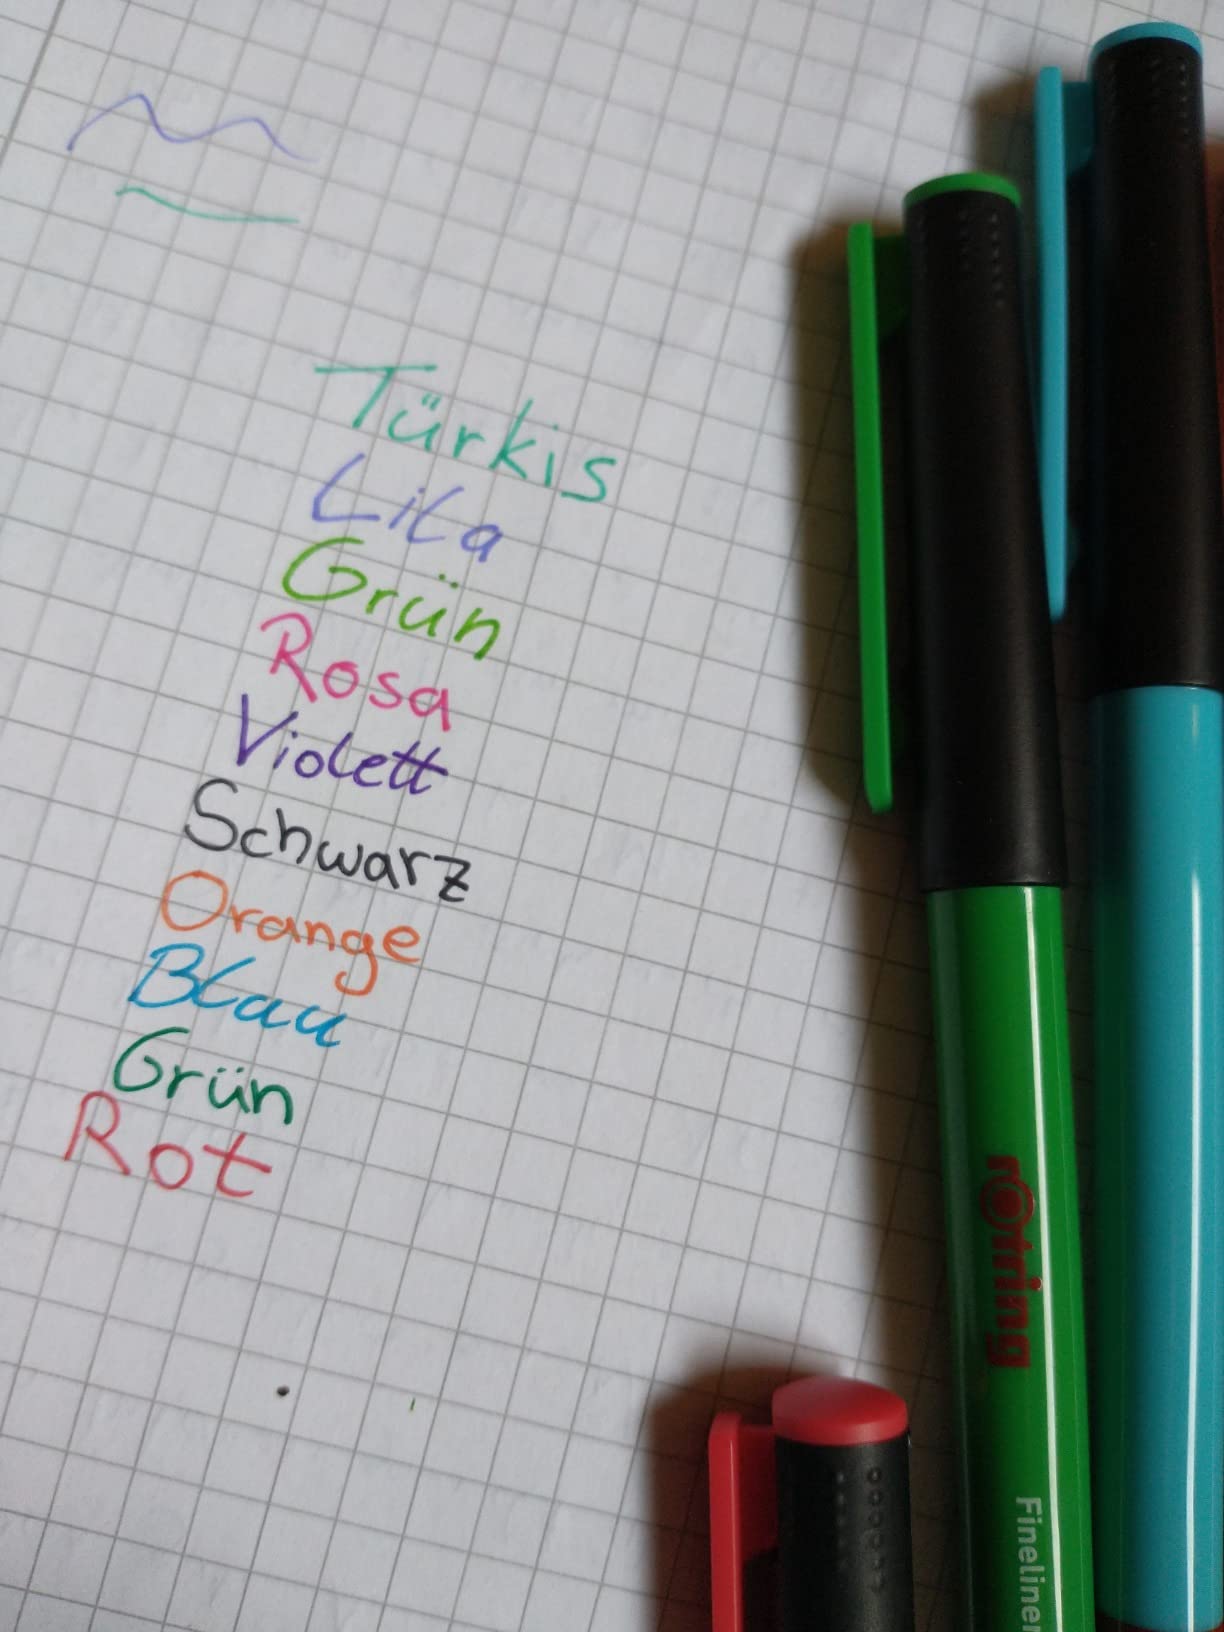 Türkis
Lila
Grün
Rosa
Violett
Schwarz
Orange
Blau
Grün
Rot
rotring
Fineliner